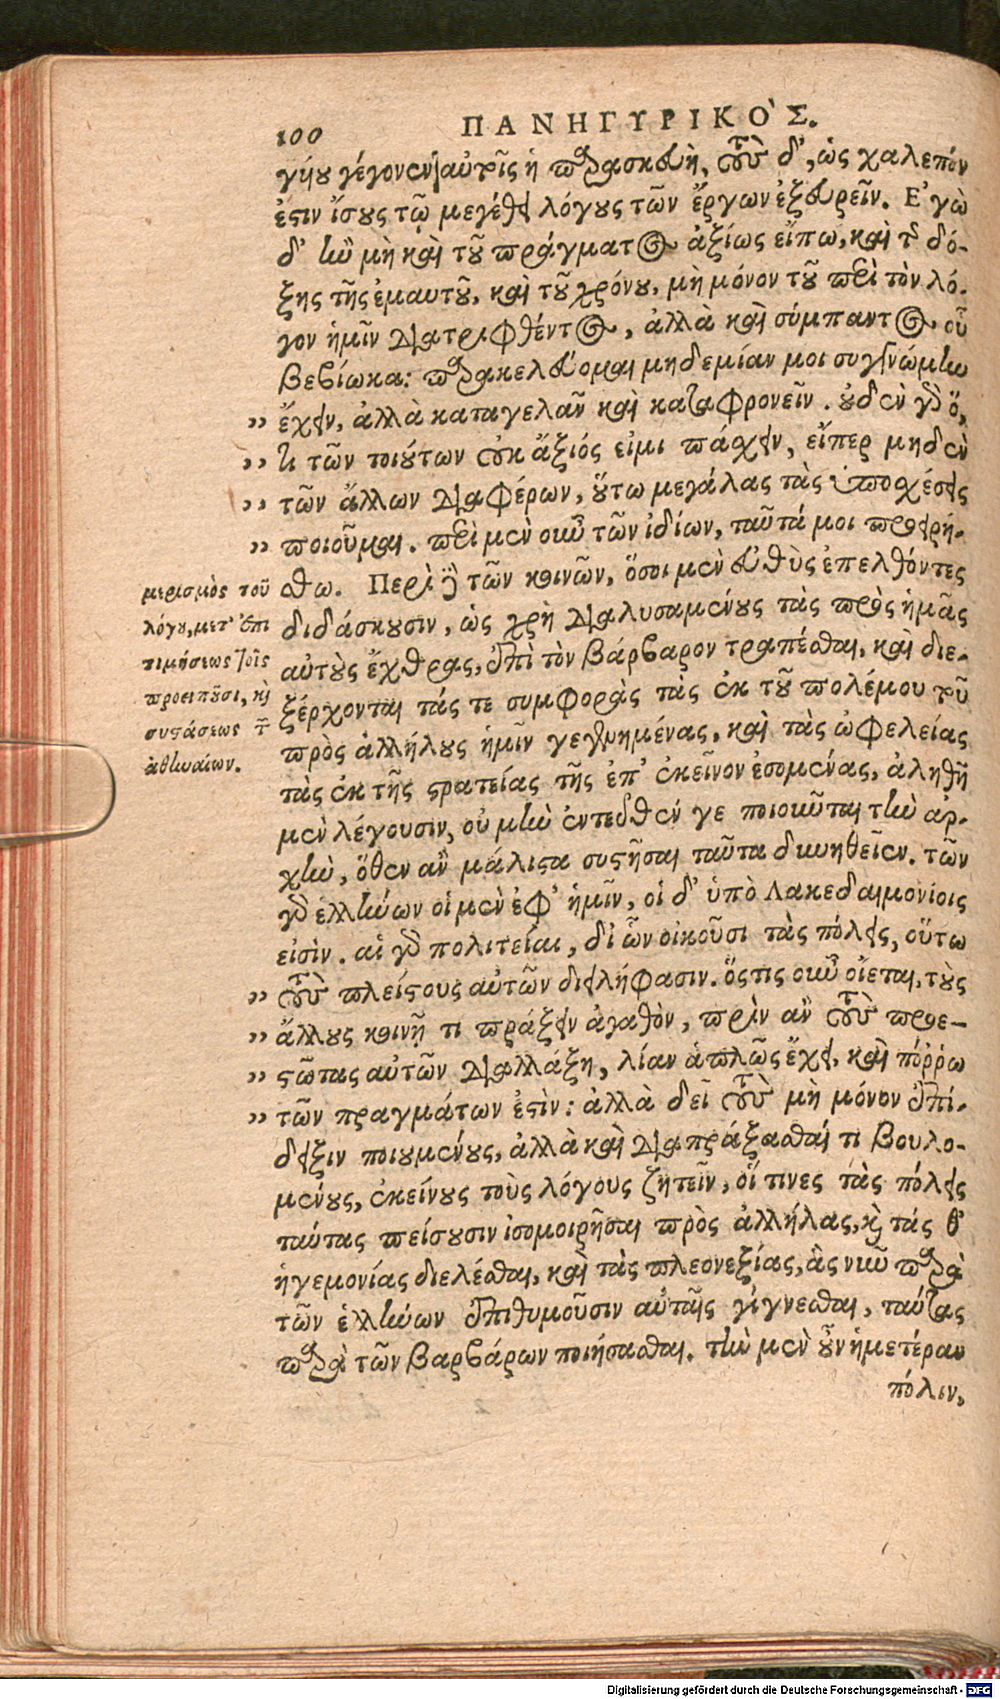 100 ΠΑΝΗΓΥΡΙΚΟ`Σ.
γύου γέγονεν αὐτοῖς ἡ παρασκευὴ, τοὺς δ', ὡς χαλεπόν
ἐστιν ἴσους τῷ μεγέθει λόγους τῶν ἔργων ἐξευρεῖν. Ε'γὼ
δ' ἢν μὴ καὶ τοῦ πράγματος ἀξίως εἴπω, καὶ τῆς δό-
ξης τῆς ἐμαυτοῦ, καὶ τοῦ χρόνου, μὴ μόνον τοῦ περὶ τὸν λό-
γον ἡμῖν διατριφθέντος, ἀλλὰ καὶ σύμπαντος, οὗ
βεβίωκα: παρακελεύομαι μηδεμίαν μοι συγγνώμην
” ἔχειν, ἀλλὰ καταγελᾶν καὶ καταφρονεῖν. οὐδὲν γὰρ ὅ,
” τι τῶν τοιούτων οὐκ ἄξιός εἰμι πάσχειν, εἴπερ μηδὲν
” τῶν ἄλλων διαφέρων, οὕτω μεγάλας τὰς ὑποσχέσεις
” ποιοῦμαι. περὶ μὲν οὖν τῶν ἰδίων, ταῦτά μοι προειρή-
σθω. Περὶ δὲ τῶν κοινῶν, ὅσοι μὲν εὐθὺς ἐπελθόντες
διδάσκουσιν, ὡς χρὴ διαλυσαμένους τὰς πρὸς ἡμᾶς
αὐτοὺς ἔχθρας, ἐπὶ τὸν βάρβαρον τραπέσθαι, καὶ διε-
ξέρχονται τάς τε συμφορὰς τὰς ἐκ τοῦ πολέμου τοῦ
πρὸς ἀλλήλους ἡμῖν γεγενημένας, καὶ τὰς ὠφελείας
τὰς ἐκ τῆς στρατείας τῆς ἐπ' ἐκεῖνον ἐσομένας, ἀληθῆ
μὲν λέγουσιν, οὐ μὴν ἐντεῦθέν γε ποιοῦνται τὴν ἀρ-
χὴν, ὅθεν ἂν μάλιστα συστῆσαι ταῦτα δυνηθεῖεν. τῶν
γὰρ ἑλλήνων οἱ μὲν ἐφ' ἡμῖν, οἱ δ' ὑπὸ Λακεδαιμονίοις
εἰσὶν. αἱ γὰρ πολιτεῖαι, δι' ὧν οἰκοῦσι τὰς πόλεις, οὕτω
” τοὺς πλείστους αὐτῶν διειλήφασιν. ὅστις οὖν οἴεται, τοὺς
” ἄλλους κοινῇ τι πράξειν ἀγαθὸν, πρὶν ἂν τοὺς προε-
” στῶτας αὐτῶν διαλλάξῃ, λίαν ἁπλῶς ἔχει, καὶ πόῤῥω
” τῶν πραγμάτων ἐστὶν: ἀλλὰ δεῖ τοὺς μὴ μόνον ἐπί-
δειξιν ποιουμένους, ἀλλὰ καὶ διαπράξασθαί τι βουλο-
μένους, ἐκείνους τοὺς λόγους ζητεῖν, οἵ τινες τὰς πόλεις
ταύτας πείσουσιν ἰσομοιρῆσαι πρὸς ἀλλήλας, καὶ τάς θ'
ἡγεμονίας διελέσθαι, καὶ τὰς πλεονεξίας, ἃς νῦν παρὰ
τῶν ἑλλήνων ἐπιθυμοῦσιν αὐταῖς γίγνεσθαι, ταύτας
παρὰ τῶν βαρβάρων ποιήσασθαι. τὴν μὲν οὖν ἡμετέραν
πόλιν,
μερισμὸς τοῦ
λόγου, μετ' ἐπι
τιμήσεως τοῖς
προειποῦσι, καὶ
συστάσεως τῶν
ἀθηναίων.
Digitalisierung gefördert durch die Deutsche Forschungsgemeinschaft - DFG